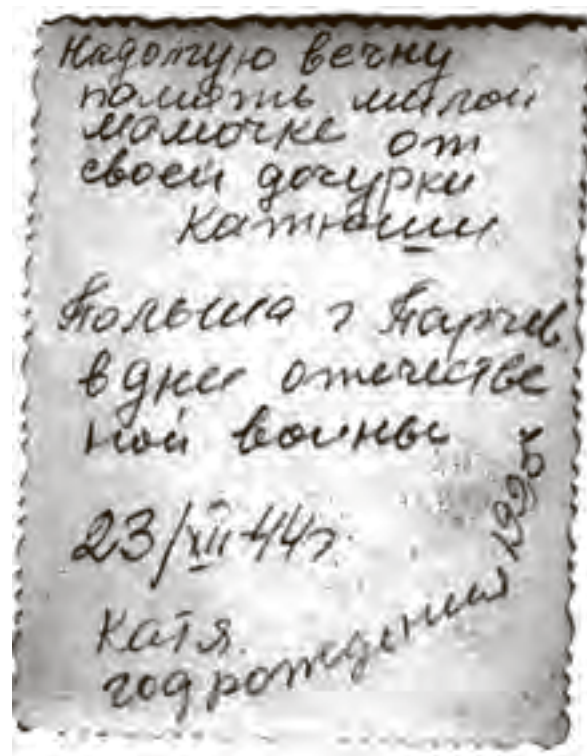 Надолгую вечну
память милой
мамочке от
своей дочурки
Катюши
Польша г Парчев
в дни отечестве
ной войны
23/XII-44г.
Катя.
год рождения